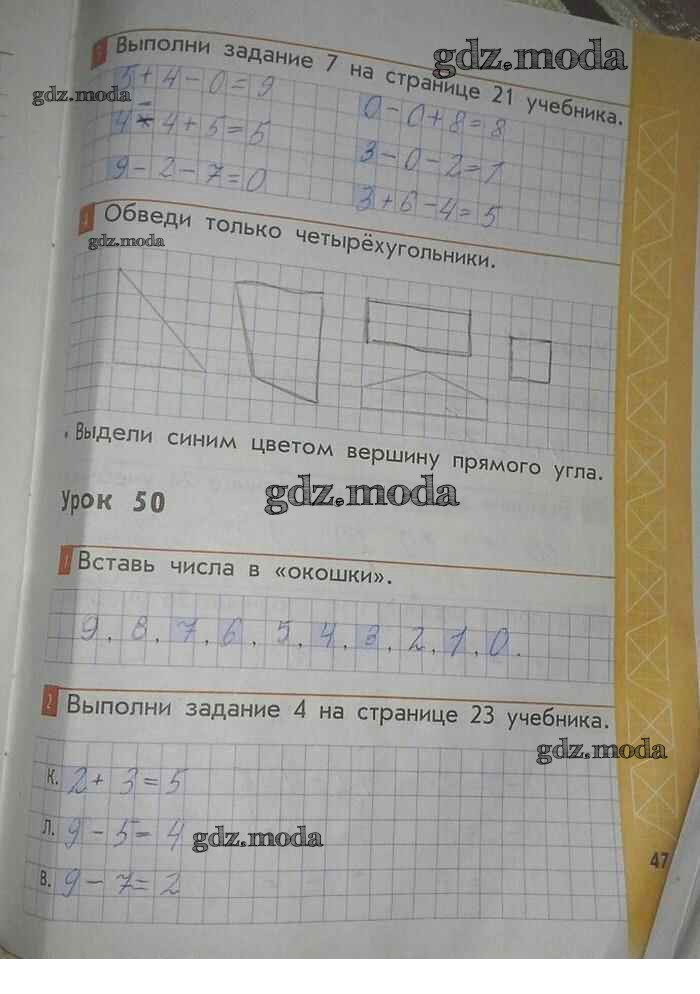 Выполни задание 7 на странице 21 учебника.
gdz.moda
gdz.moda
5+4-0=9
0-0+8=8
4-4+5=5
3-0-2=1
9-2-7=0
3+6-4=5
Обведи только четырёхугольники.
gdz.moda
Выдели синим цветом вершину прямого угла.
Урок 50
gdz.moda
1 Вставь числа в «окошки».
9, 8, 7, 6, 5, 4, 3, 2, 1, 0.
2 Выполни задание 4 на странице 23 учебника.
gdz.moda
К. 2+3=5
Л. 9-5=4
gdz.moda
В. 9-7=2
47